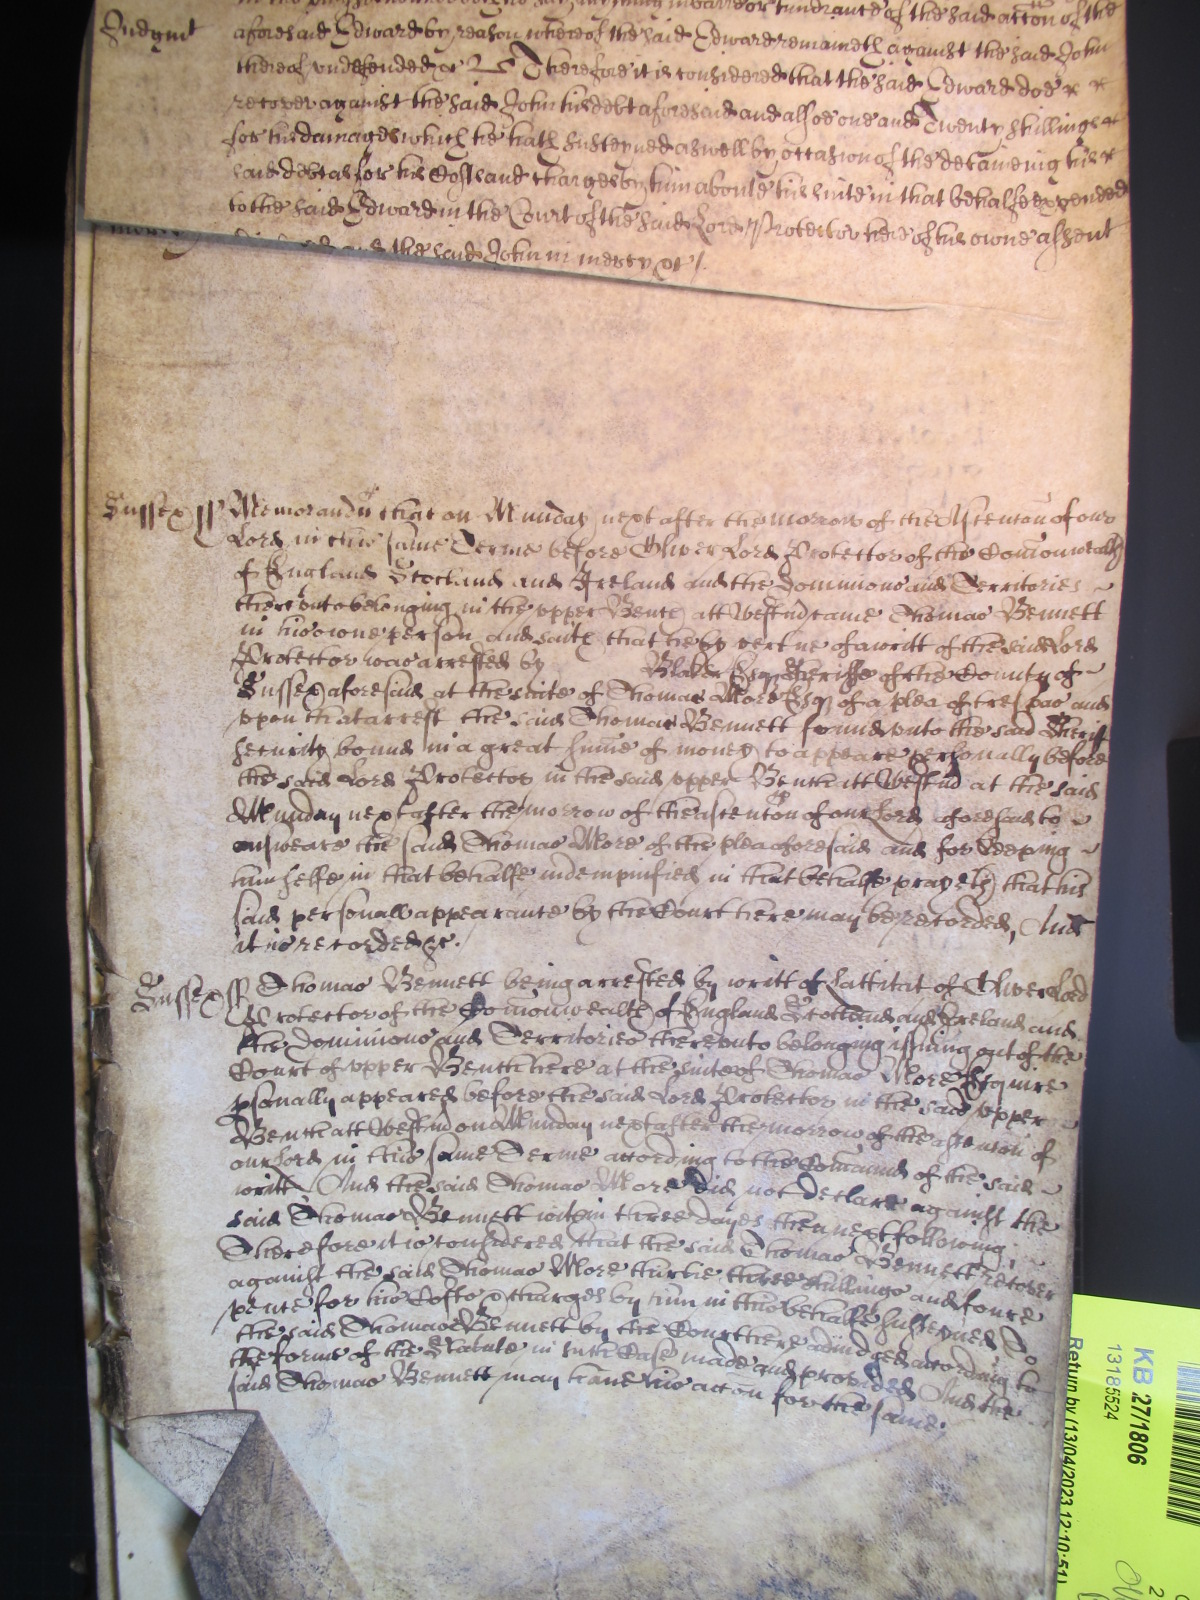 Judgmt
aforesaid Edward by reason whereof the said Edward remaineth against the said John
thereof undefended &c Therefore it is considered that the said Edward doe
recover against the said John his debt aforesaid and alsoe one and Twenty shillings
for his damages which he hath susteyned aswell by occasion of the deteineing his
said debt as for his Costs and charges by him about his suite in that behalfe expended
to the said Edward in the Court of the said Lord Protector here of his owne assent
and the said John in mercy &c
Sussex ss Memorandu that on Munday next after the morrow of the Assention of our
Lord in this same Terme before Oliver Lord Protector of the Comonwealth
of England Scotland and Ireland and the dominions and Territories
thereunto belonging in the upper Bench att Westm came Thomas Bennett
in his owne person and saith that he by vertue of a writt of the said Lord
Protector was arrested by Blaker Esq Sheriffe of the County of
Sussex aforesaid at the suite of Thomas More Esq of a plea of trespas and
upon that arrest the said Thomas Bennett found unto the said Sheriff
security bound in a great sume of money to appeare personally before
the said Lord Protector in the said upper Bench att Westm at the said
Munday next after the morrow of the Assention of our Lord aforesaid to
answeare the said Thomas More of the plea aforesaid and for keeping
him selfe in that behalfe indempnified in that behalfe prayeth that his
said personall appearance by the Court here may be recorded, And
it is recorded &c.
Sussex ss Thomas Bennett being arrested by writt of Lattitat of Oliver Lord
Protector of the Comonwealth of England Scotland and Ireland and
the dominions and Territories thereunto belonging issuing out of the
Court of upper Bench here at the suite of Thomas More Esquire
psonally appeared before the said Lord Protector in the said upper
Bench att Westm on Munday next after the morrow of the Assention of
our Lord in this same Terme according to the Comaund of the said
writt And the said Thomas More did not declare against the
said Thomas Bennett within three dayes then next following
Therefore it is considered that the said Thomas Bennett recover
against the said Thomas More thirtie three shillings and foure
pence for his Costs & charges by him in this behalfe susteyned To
the said Thomas Bennett by the Court here adiudged according to
the forme of the Statute in such Case made and provided And the
said Thomas Bennett may have his accon for the same.
KB 27/1806
13185524
Return by (13/04/2023 12:10:51)